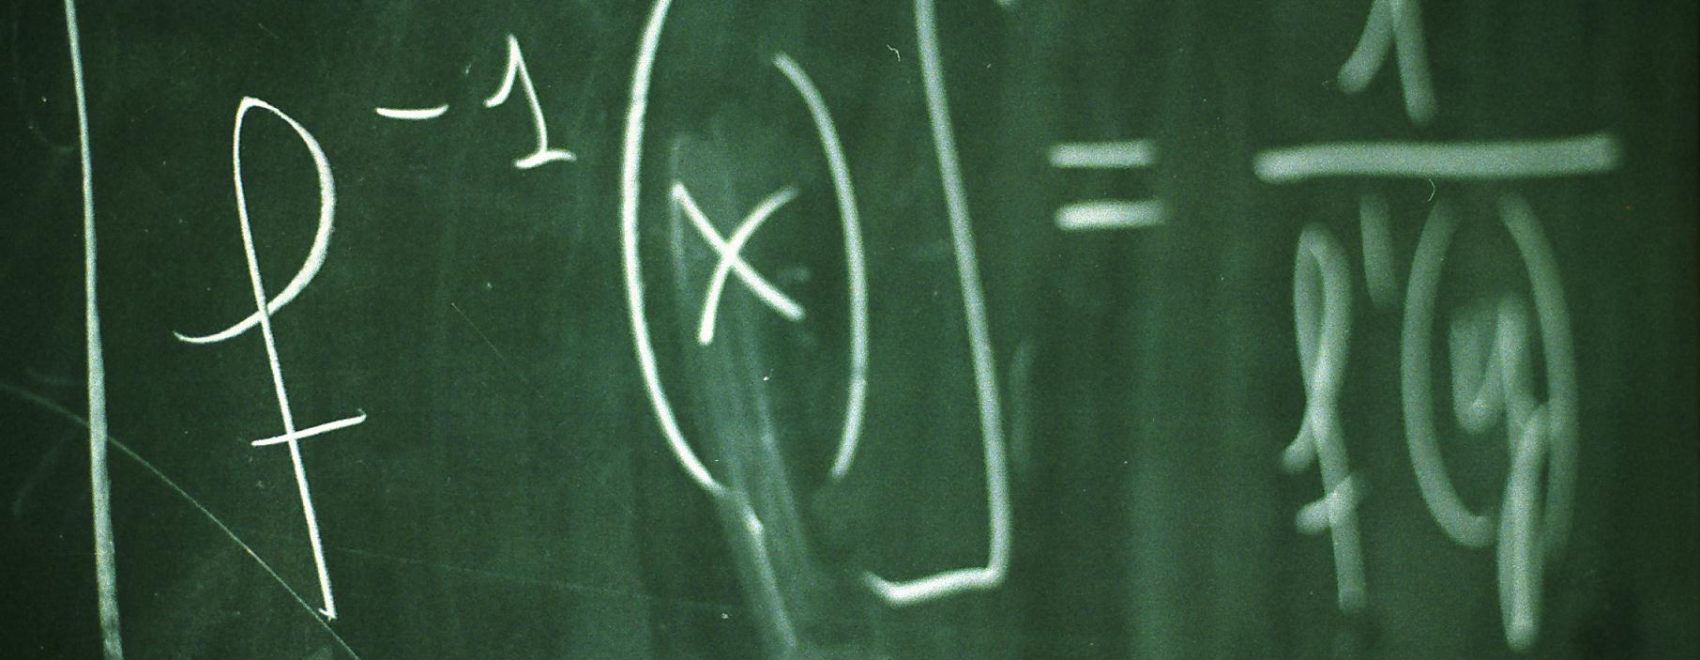 [f⁻¹(x)] = 1/f'(y)